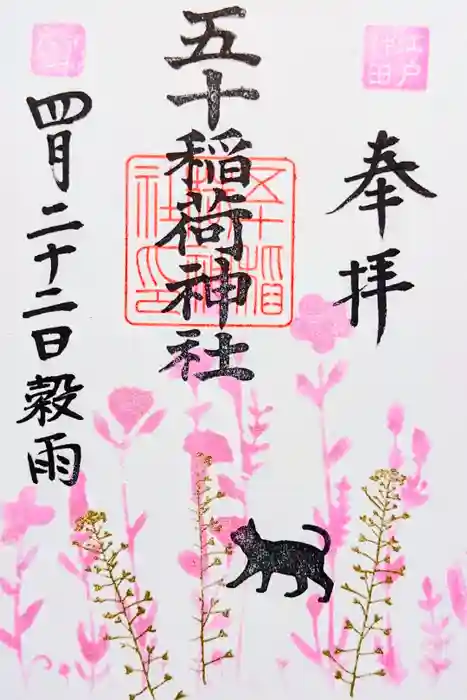 江戸
神田
奉拝
五十稲荷神社
四月二十二日穀雨